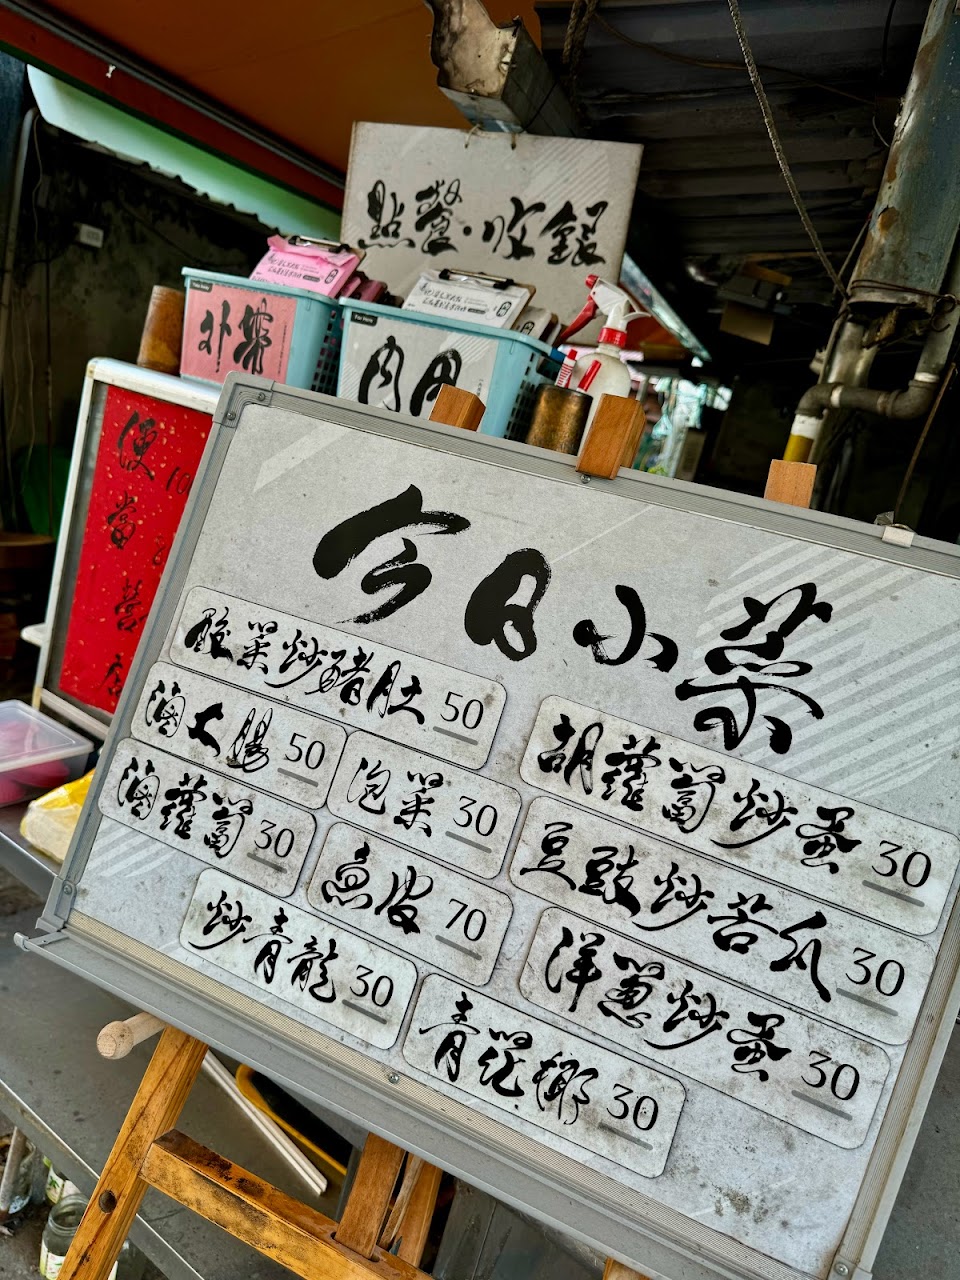 點餐·收銀
外帶
內用
便當
今日小菜
酸菜炒豬肚 50
滷大腸 50
泡菜 30
滷蘿蔔 30
魚皮 70
炒青龍 30
青花椰 30
胡蘿蔔炒蛋 30
豆豉炒苦瓜 30
洋蔥炒蛋 30